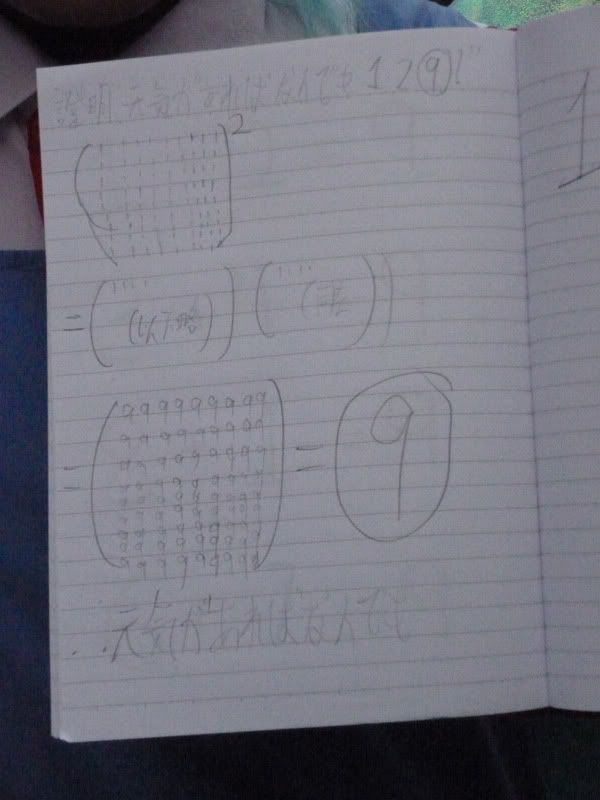 證明"元気があればなんでも 1 2 ⑨!"
( )²
= ( 1 1 1 1 ) ( 1 1 1 1 )
(以下略)
9 9 9 9 9 9 9 9 9
9 9 9 9 9 9 9 9 9
9 9 9 9 9 9 9 9 9
9 9 9 9 9 9 9 9 9
= ( 9 9 9 9 9 9 9 9 9 ) = 9
9 9 9 9 9 9 9 9 9
9 9 9 9 9 9 9 9 9
9 9 9 9 9 9 9 9 9
9 9 9 9 9 9 9 9 9
∴元気があればなんでも
1